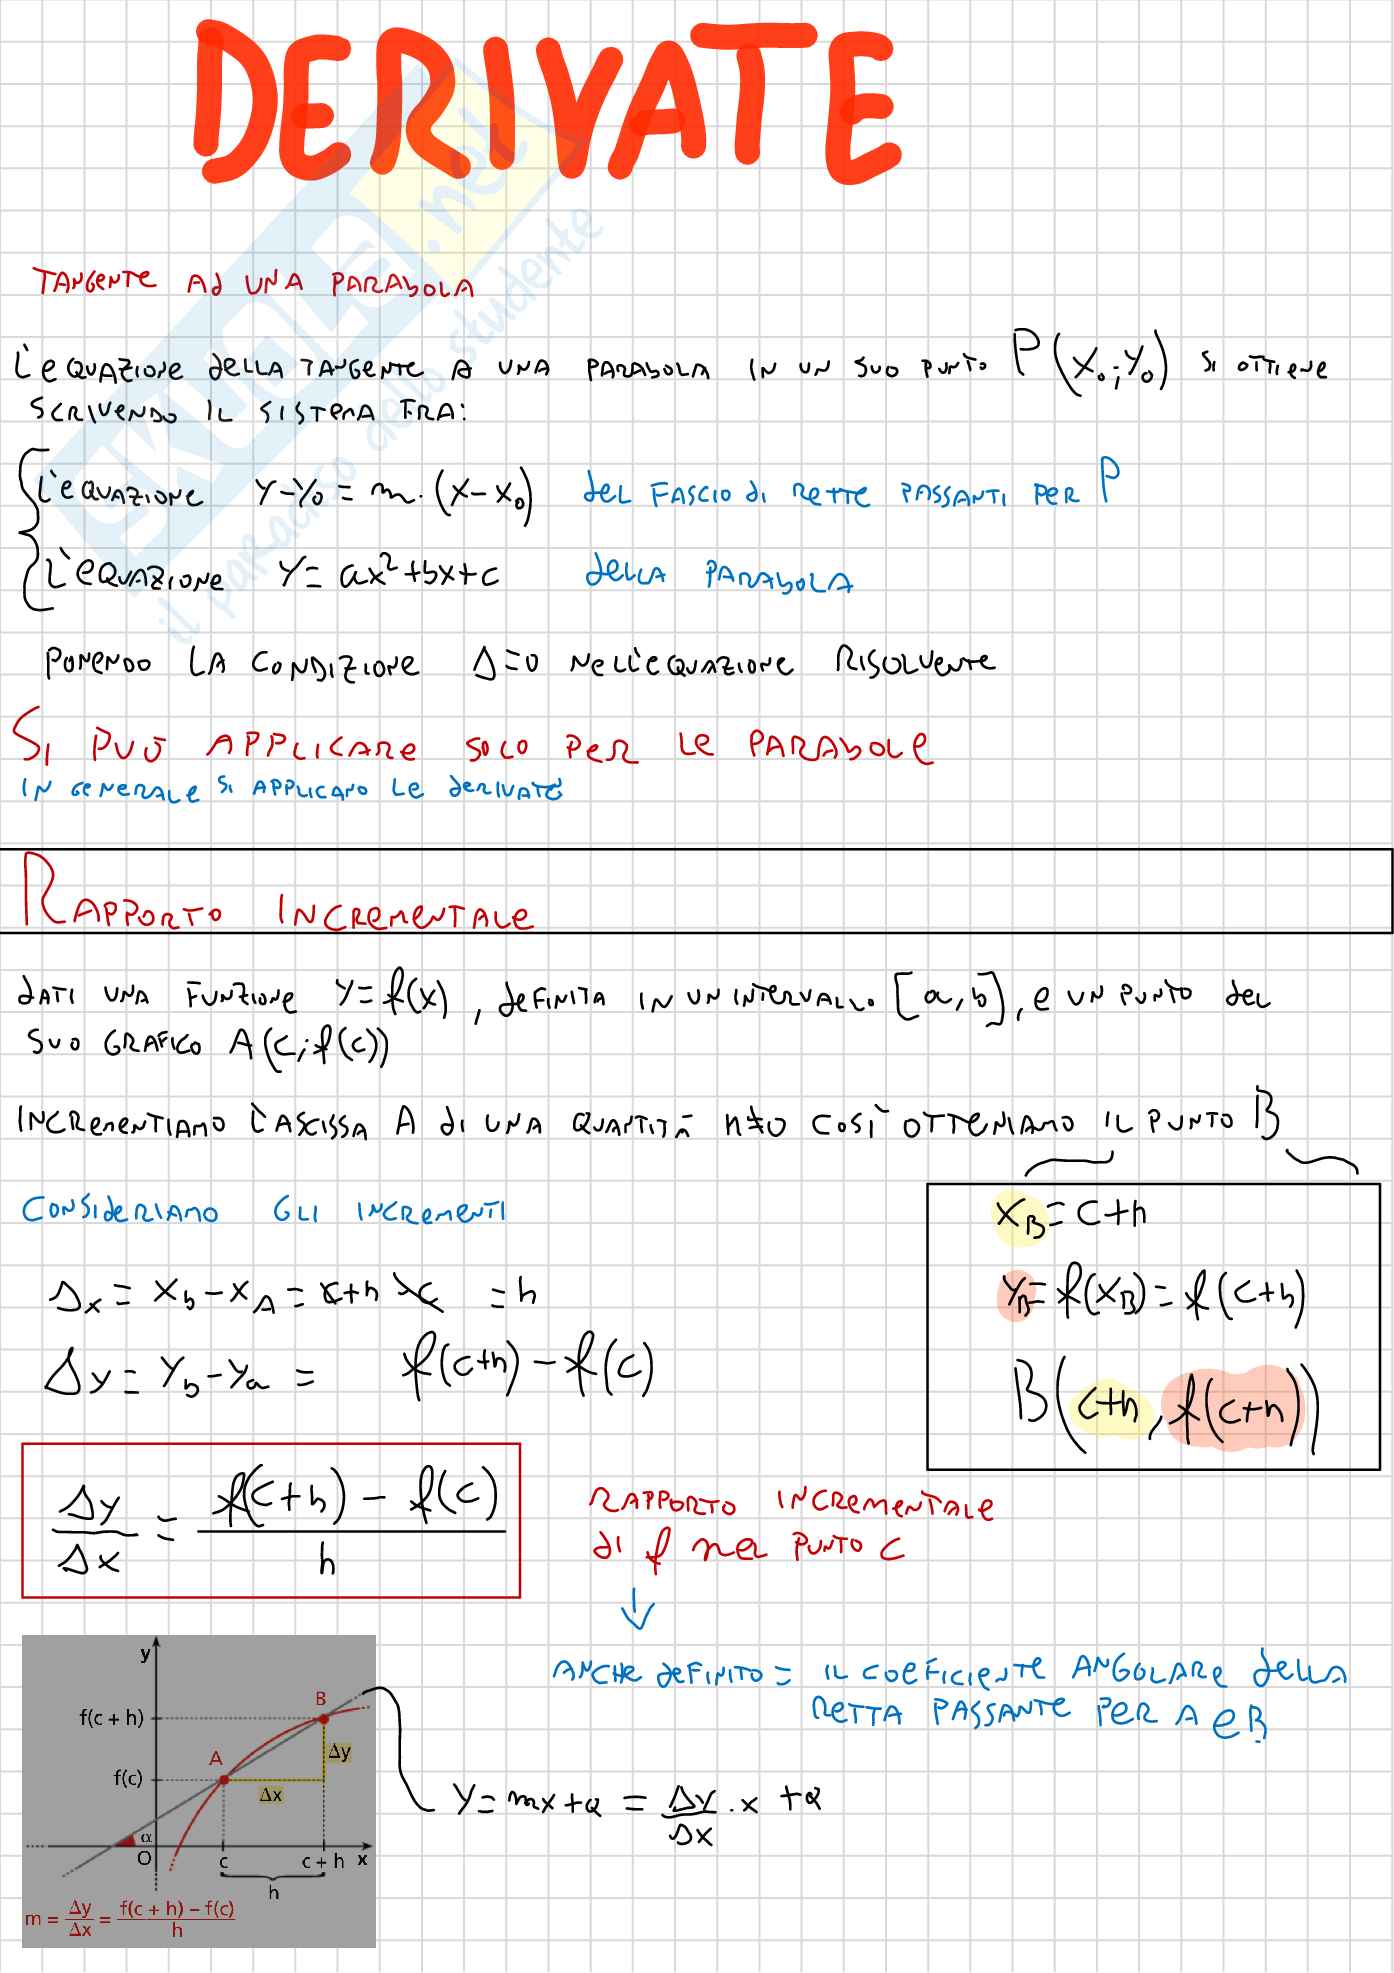 DERIVATE
SKUOLA.net
il paradiso dello studente
TANGENTE Ad UNA PARABOLA
L'EQUAZIONE dELLA TANGENTE A UNA PARABOLA IN UN SUO PUNTO P(X₀;Y₀) SI OTTIENE
SCRIVENDO IL SISTEMA FRA:
L'EQUAZIONE Y-Y₀=m·(X-X₀) dEL FASCIO di RETTE PASSANTI PER P
L'EQUAZIONE Y=ax²+bx+c dELLA PARABOLA
PONENDO LA CONDIZIONE Δ=0 NELL'EQUAZIONE RISOLVENTE
SI PUÓ APPLICARE SOLO PER LE PARABOLE
IN GENERALE SI APPLICANO LE dERIVATE
RAPPORTO INCREMENTALE
dATI UNA FUNZIONE Y=f(x), dEFINITA IN UN INTERVALLO [a,b], E UN PUNTO dEL
SUO GRAFICO A(C;f(c))
INCREMENTIAMO L'ASCISSA A di UNA QUANTITÀ h≠0 COSÌ OTTENIAMO IL PUNTO B
CONSIdERIAMO GLI INCREMENTI
X_B=C+h
Δx = X_b-X_A = c+h-c =h
Y_B=f(X_B)=f(C+h)
Δy=Y_b-Y_a = f(c+h)-f(c)
B(c+h,f(c+h))
Δy/Δx = f(c+h)-f(c)/h
RAPPORTO INCREMENTALE
dI f NEL PUNTO C
ANCHE dEFINITO = IL COEFICIENTE ANGOLARE dELLA
RETTA PASSANTE PER A E B
y
B
f(c + h)
A
Δy
f(c)
Δx
α
O
c
c + h
x
h
m = Δy/Δx = f(c + h) − f(c)/h
Y=mx+q = Δy/Δx·x+q